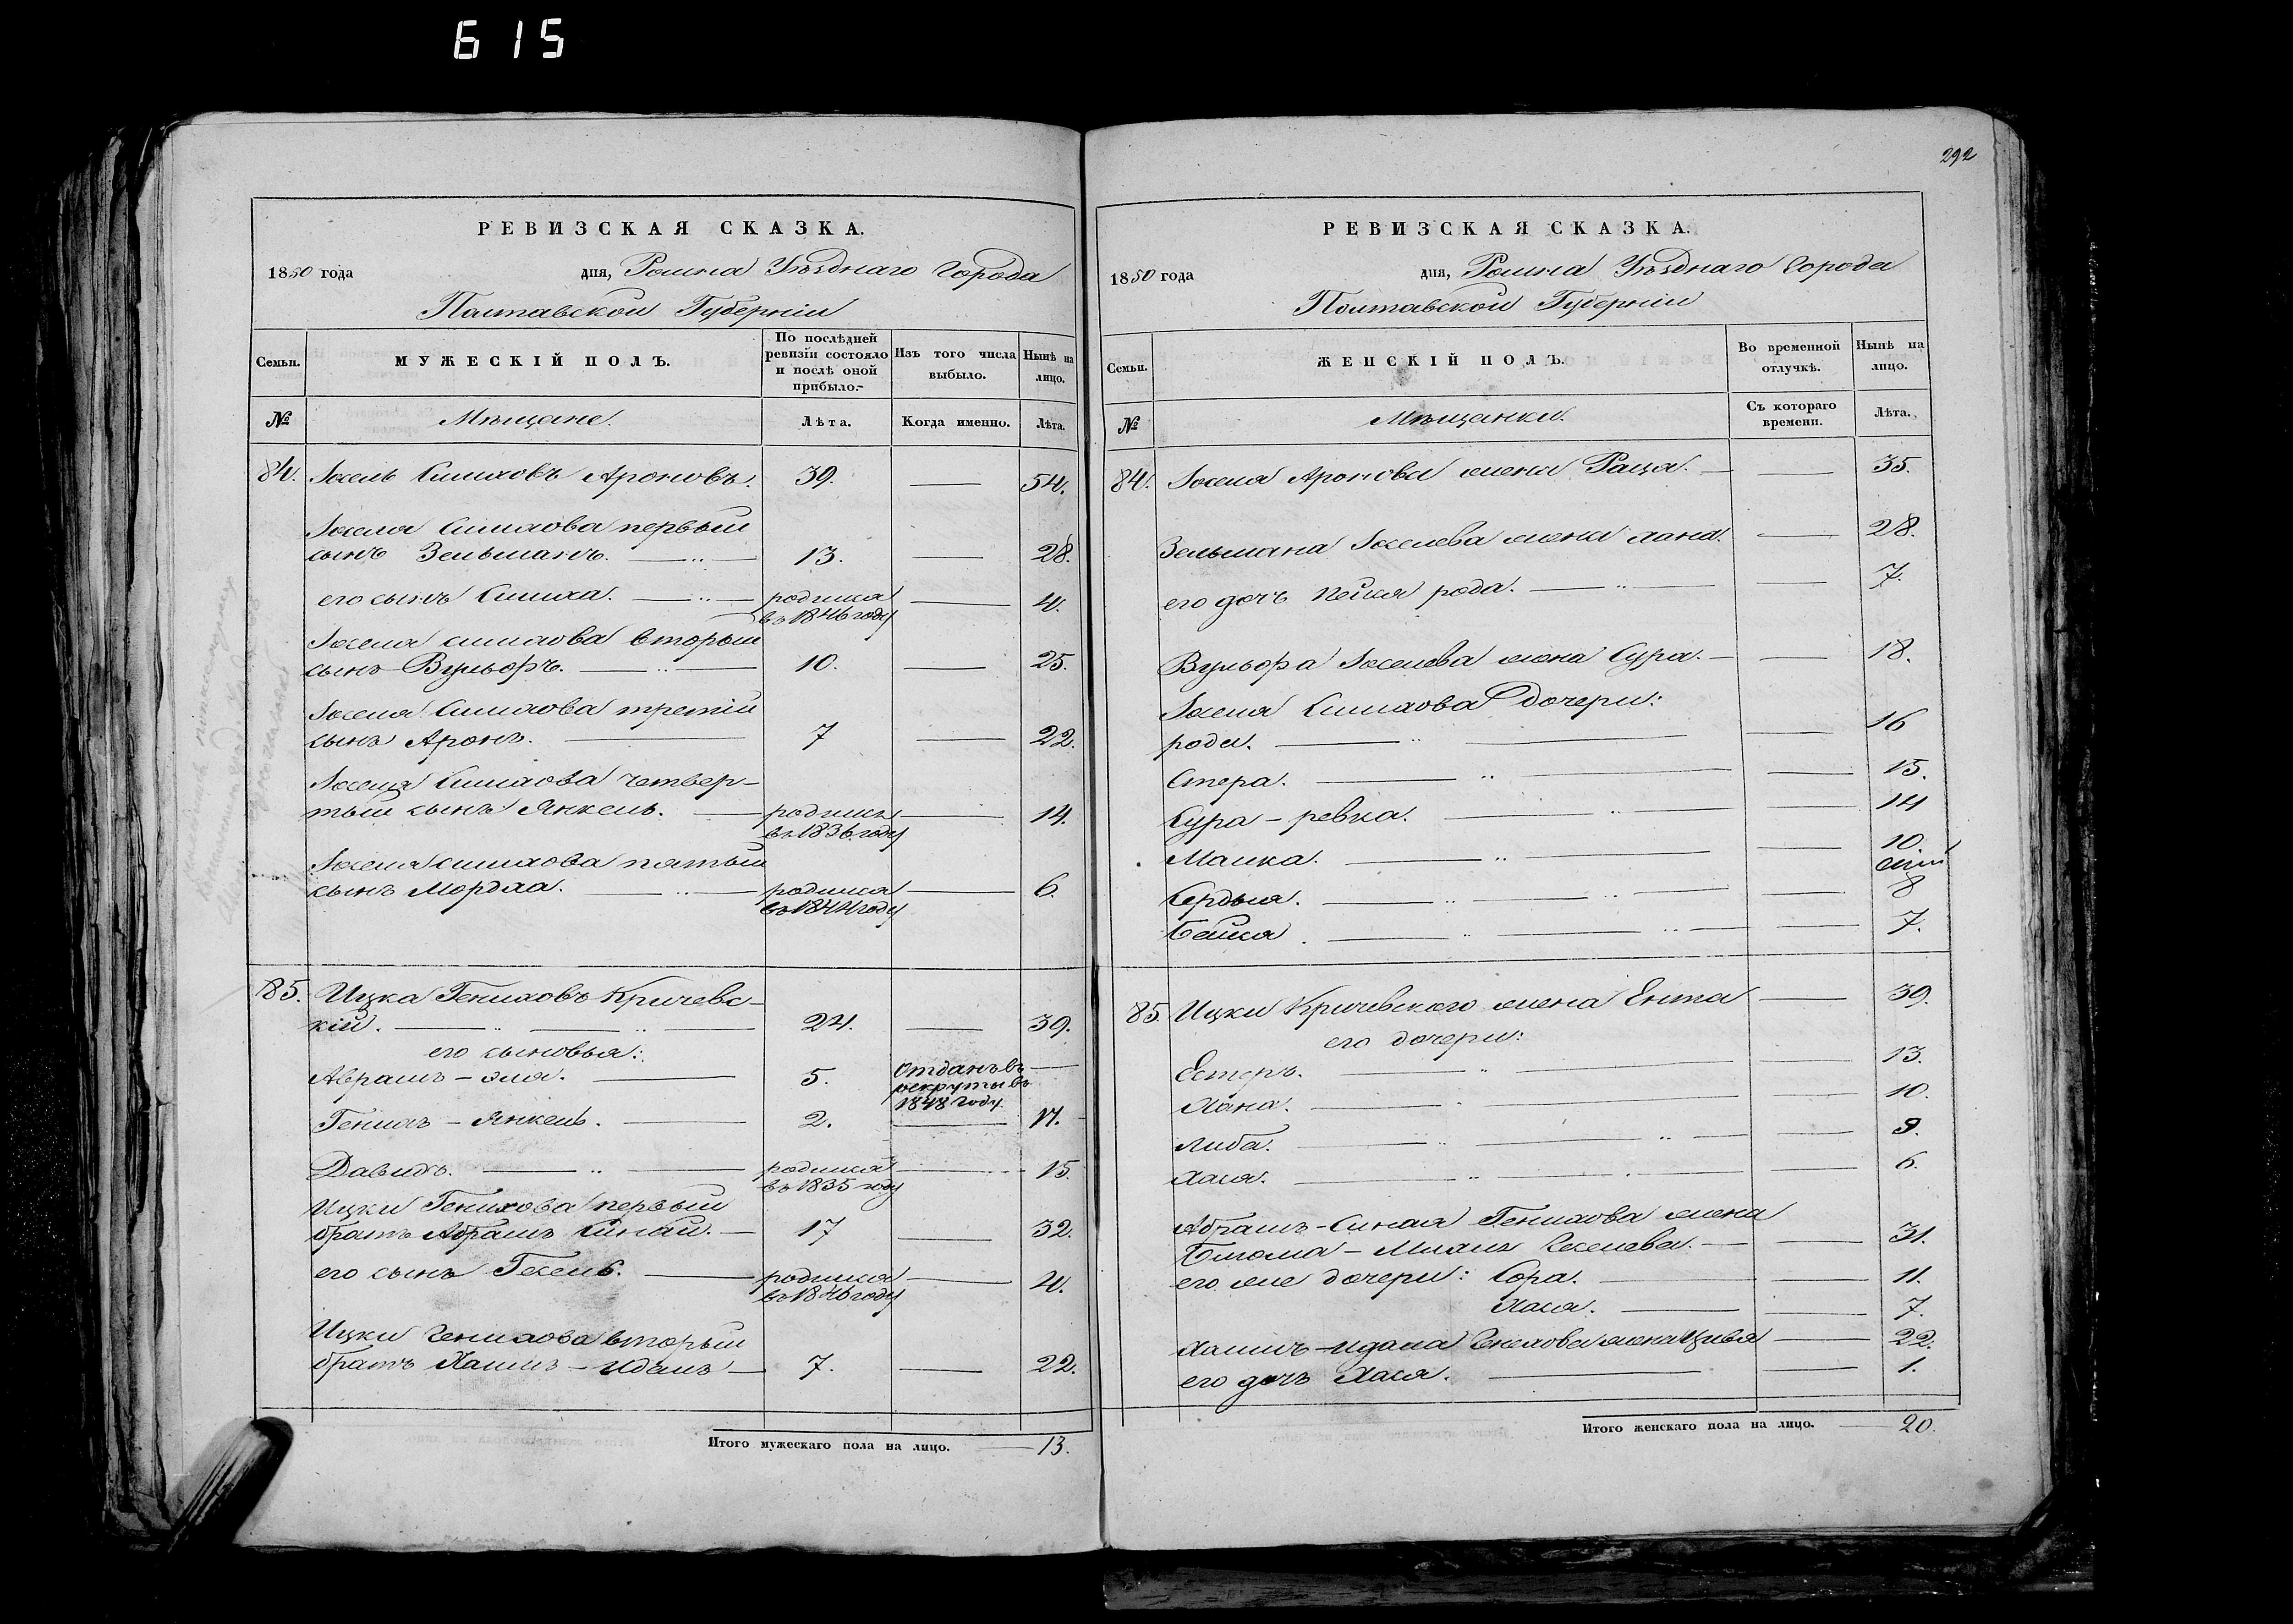 615
292
РЕВИЗСКАЯ СКАЗКА.
1850 года дня, Ромна Уѣзднаго Города
Полтавской Губерніи
Семьи. МУЖЕСКІЙ ПОЛЪ. По послѣдней ревизіи состояло и послѣ оной прибыло. Изъ того числа выбыло. Нынѣ на лицо.
№ Мѣщане. Лѣта. Когда именно. Лѣта.
84. Іосель Симховъ Ароновъ. 39. 54.
Іоселя Симхова первый
сынъ Зельманъ. 13. 28.
его сынъ Симха. родился 4.
въ 1846 году
Іоселя Симхова вторый
сынъ Вульфъ. 10. 25.
Іоселя Симхова третій
сынъ Аронъ. 7 22.
Іоселя Симхова четвер-
тый сынъ Янкель. родился 14.
въ 1836 году
Іоселя Симхова пятый
сынъ Мордха. родился 6.
въ 1844 году
85. Ицка Гениховъ Кричевс-
кій. 24. 39.
его сыновья:
Абрамъ-Эля. 5. Отданъ въ
рекруты въ
1848 году.
Генихъ-Янкель. 2. 17.
Давидъ. родился 15.
въ 1835 году
Ицки Генихова первый
братъ Абрамъ Синай. 17 32.
его сынъ Гесель. родился 4.
въ 1846 году
Ицки Генихова вторый
братъ Хаимъ-Иданъ 7. 22.
Итого мужескаго пола на лицо. 13.
РЕВИЗСКАЯ СКАЗКА.
1850 года дня, Ромна Уѣзднаго Города
Полтавской Губерніи
Семьи. ЖЕНСКІЙ ПОЛЪ. Во временной отлучкѣ. Нынѣ на лицо.
№ Мѣщанки. Съ котораго времени. Лѣта.
84. Іоселя Аронова жена Раца. 35.
Зельмана Іоселева жена Хана. 28.
его дочь Пейся рода. 7.
Вульфа Іоселева жена Сура. 18.
Іоселя Симхова дочери:
рода. 16
Стера. 15.
Сура-ревка. 14
Малка. 10.
Сердыя. 8
Бейся. 7.
85. Ицки Кричевского жена Ента 39.
его дочери:
Естеръ. 13.
Хана. 10.
Либа. 9.
Хася. 6.
Абрамъ-Синая Генихова жена
31.
его же дочери: Сора. 11.
Хася. 7.
22.
его дочь Хася. 1.
Итого женскаго пола на лицо. 20.